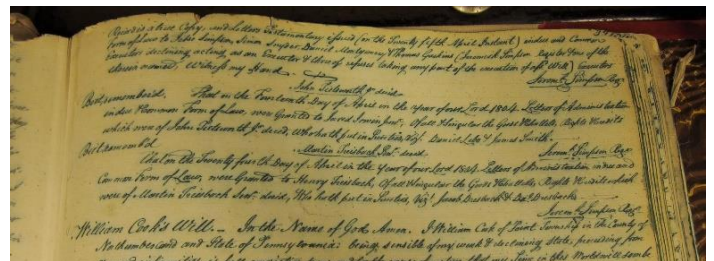 Above is a true Copy, and Letters Testamentary issued (on the Twenty fifth April Instant) in due and Common
form of Law to John Simpson, Simon Snyder, Daniel Montgomery & Thomas Gaskins (Jeremiah Simpson Register &one of the
Executors declining acting as an Executor & there of refuses taking any part of the execution of sd Will) Executors
therein named. Witness my Hand
Jerema Simpson Regr
John Teitsworth Jr. decd.
Be it remembered. That on the Fourteenth Day of April in the year of our Lord 1804. Letters of Administration
in due & Common Form of Law, were Granted to Jared Irwin Jnr, Of all & singular the Goods Chattels, Rights & Credits
which were of John Teitsworth Jr. decd, who hath put in Sureties, Viz. Daniel Lebo & James Smith.
Jerema Simpson Regr
Martin Treisbach Senr. decd.
Be it rememb'd
That on the Twenty fourth Day of April in the Year of our Lord 1804. Letters of Administration in due and
Common Form of Law, were Granted to Henry Treisbach, Of all & singular the Goods Chattels, Rights & Credits which
were of Martin Treisbach Senr. decd, Who hath put in Sureties, Viz. Jacob Driesbach &
Jerema Simpson Regr
William Cook's Will. In the Name of God Amen. I William Cook of Point Township in the County of
Northumberland and State of Pennsylvania: being sensible of my weak & declining State, proceeding from